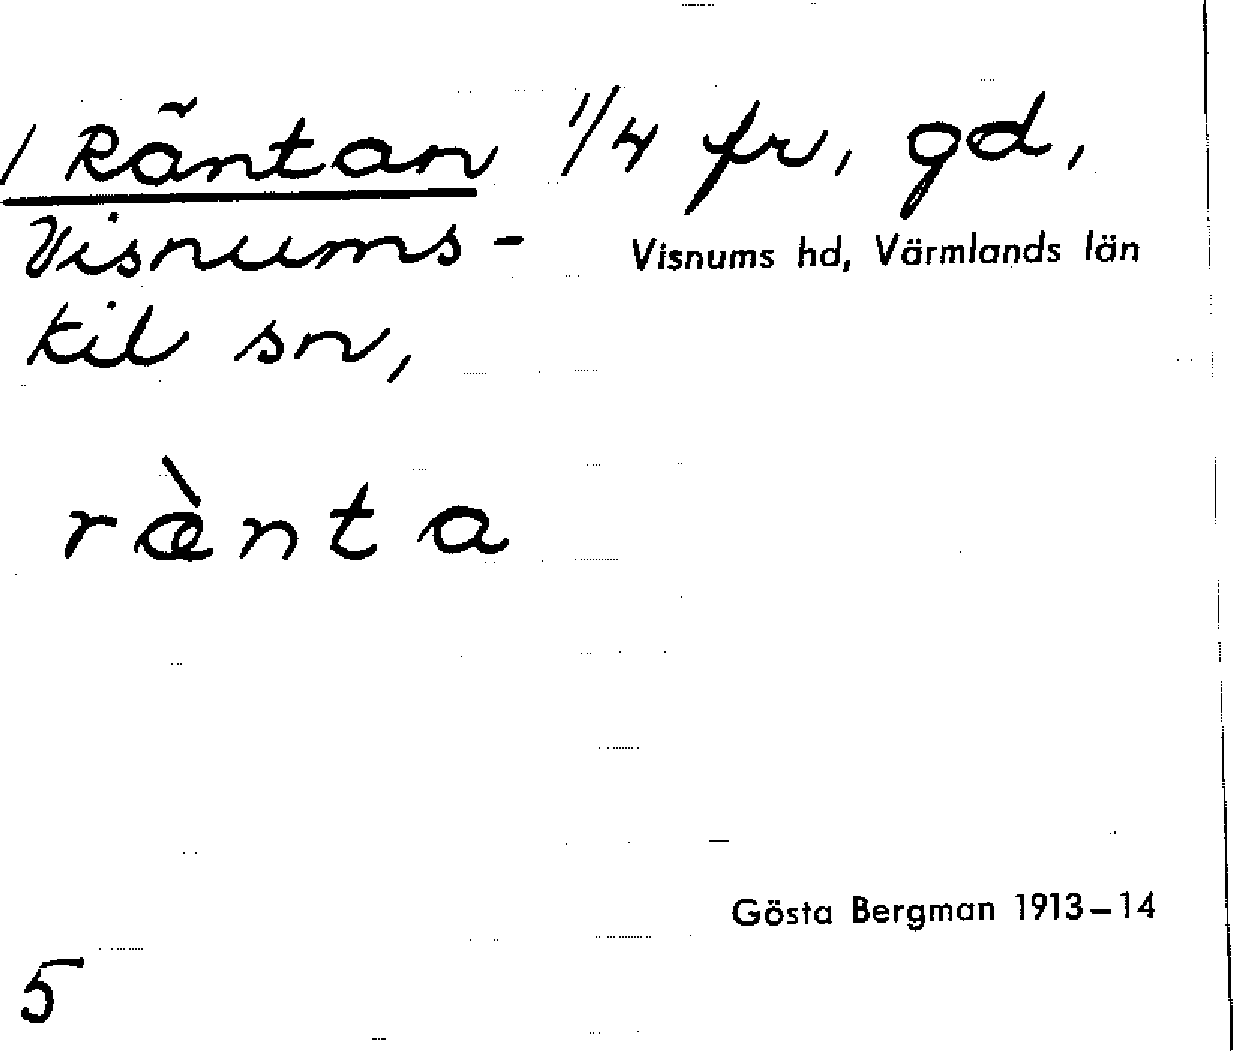 / Räntan 1/4 fr, gd,
Visnums-
kil sn,
Visnums hd, Värmlands län
ræ̀nta
Gösta Bergman 1913–14
5